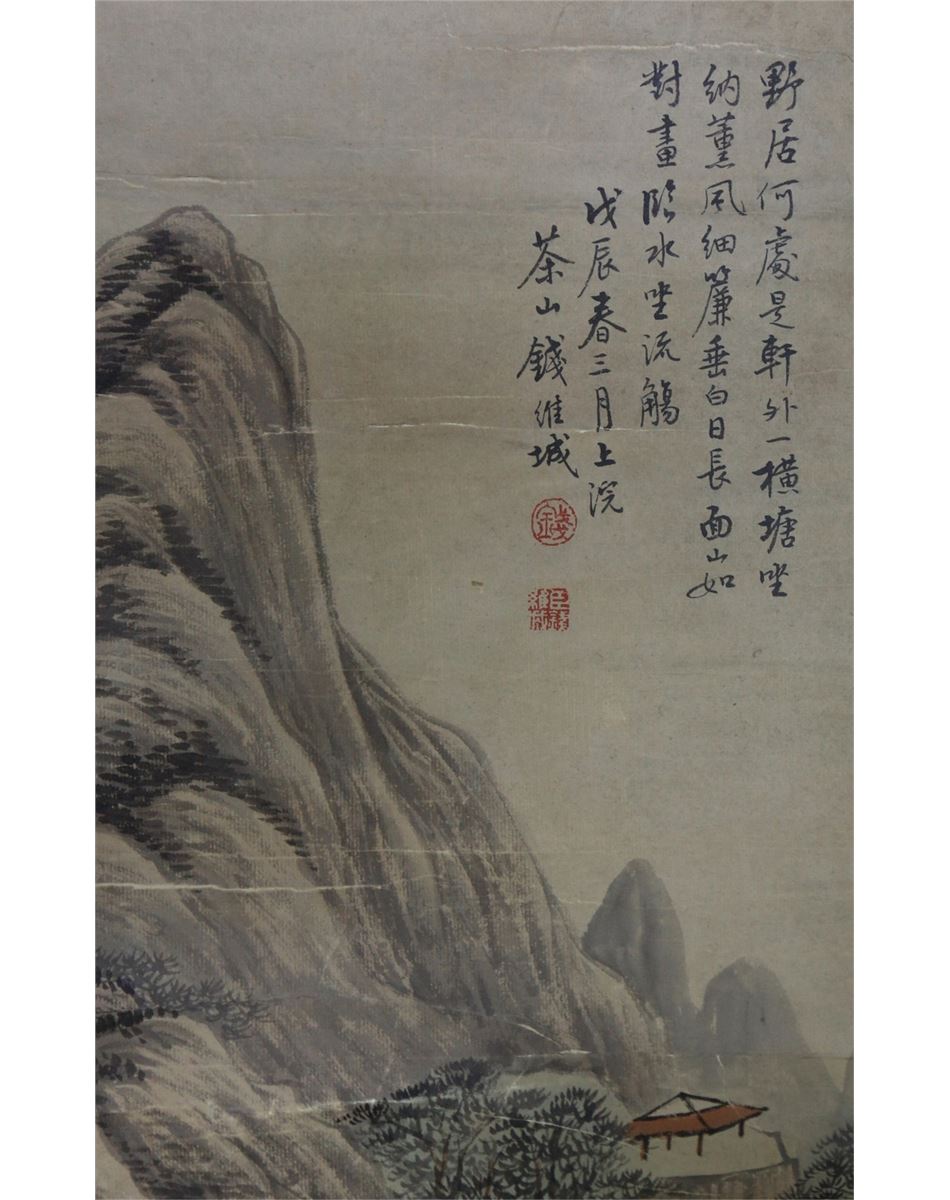 野居何處是軒外一橫塘坐
納薰風細簾垂白日長面山如
對畫臨水坐流觴
戊辰春三月上浣
茶山錢維城
錢
臣錢維城